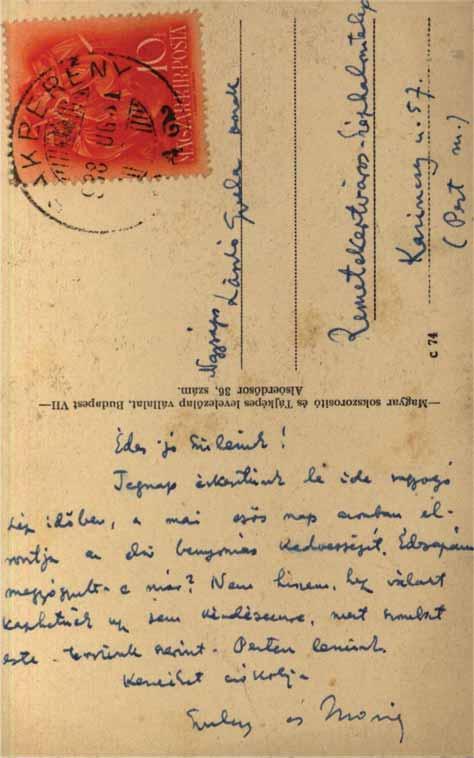 10f
MAGYAR KIR. POSTA
JÁKBERÉNY
Nagyságos
László Gyula úrnak
Remetekertváros-Széphalomtelep
Kazinczy u. 57.
(Pest m.)
C 74
—Magyar sokszorosító és Tájképes levelezőlap vállalat, Budapest VII—
Alsóerdősor 36, szám.
Édes jó Szüleink!
Tegnap érkeztünk le ide ragyogó
szép időben, a mai esős nap azonban el-
rontja az első benyomás kedvességét. Édesapám
meggyógyult-e már? Nem hiszem, hogy választ
kaphatnék úgy sem kérdésemre, mert szombat
este - tervünk szerint - Pesten leszünk.
Kezeiket csókolja
és